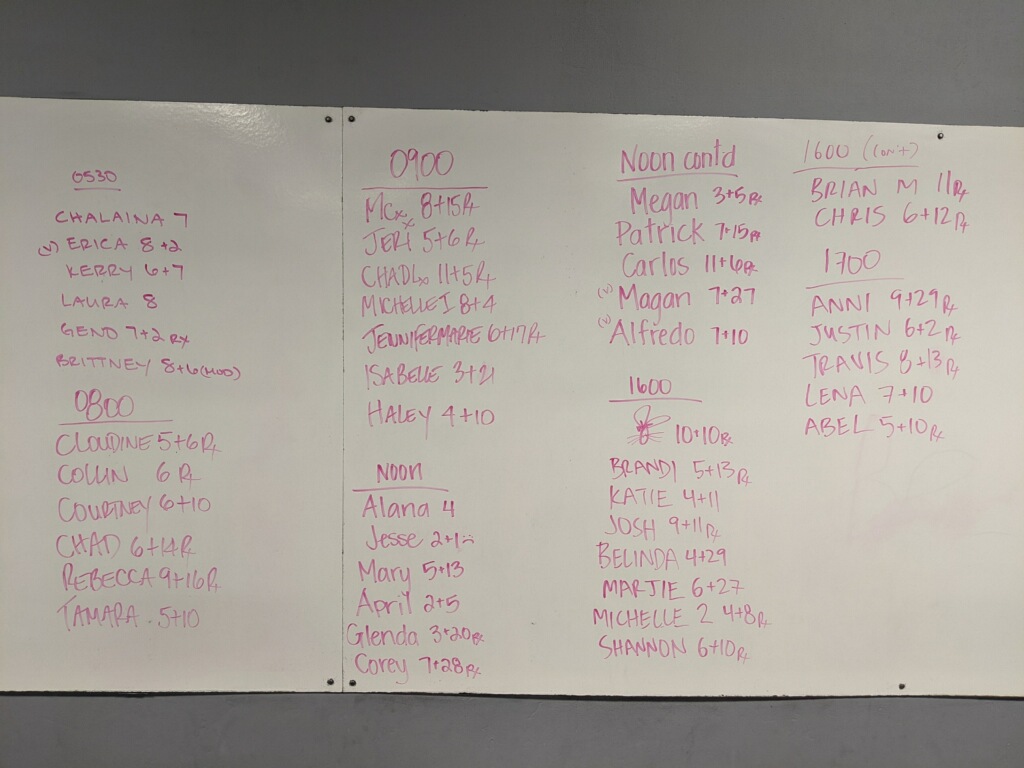 0530
CHALAINA 7
(v) ERICA 8+2
KERRY 6+7
LAURA 8
GENO 7+2 Rx
BRITTNEY 8+6 (MOD)
0800
CLOUDINE 5+6 Rx
COLLIN 6 Rx
COURTNEY 6+10
CHAD 6+14 Rx
REBECCA 9+16 Rx
TAMARA . 5+10
0900
MCx 8+15 Rx
JERI 5+6 Rx
CHADLo 11+5 Rx
MICHELLE I 8+4
JENNIFERMARIE 6+17 Rx
ISABELLE 3+21
HALEY 4+10
NOON
Alana 4
Jesse 2+1
Mary 5+13
April 2+5
Glenda 3+20 Rx
Corey 7+28 Rx
Noon contd
Megan 3+5 Rx
Patrick 7+15 Rx
Carlos 11+6 Rx
(v) Magan 7+27
(v) Alfredo 7+10
1600
10+10 Rx
BRANDI 5+13 Rx
KATIE 4+11
JOSH 9+11 Rx
BELINDA 4+29
MARJIE 6+27
MICHELLE 2 4+8 Rx
SHANNON 6+10 Rx
1600 (con't)
BRIAN M 11 Rx
CHRIS 6+12 Rx
1700
ANNI 9+29 Rx
JUSTIN 6+2 Rx
TRAVIS 8+13 Rx
LENA 7+10
ABEL 5+10 Rx